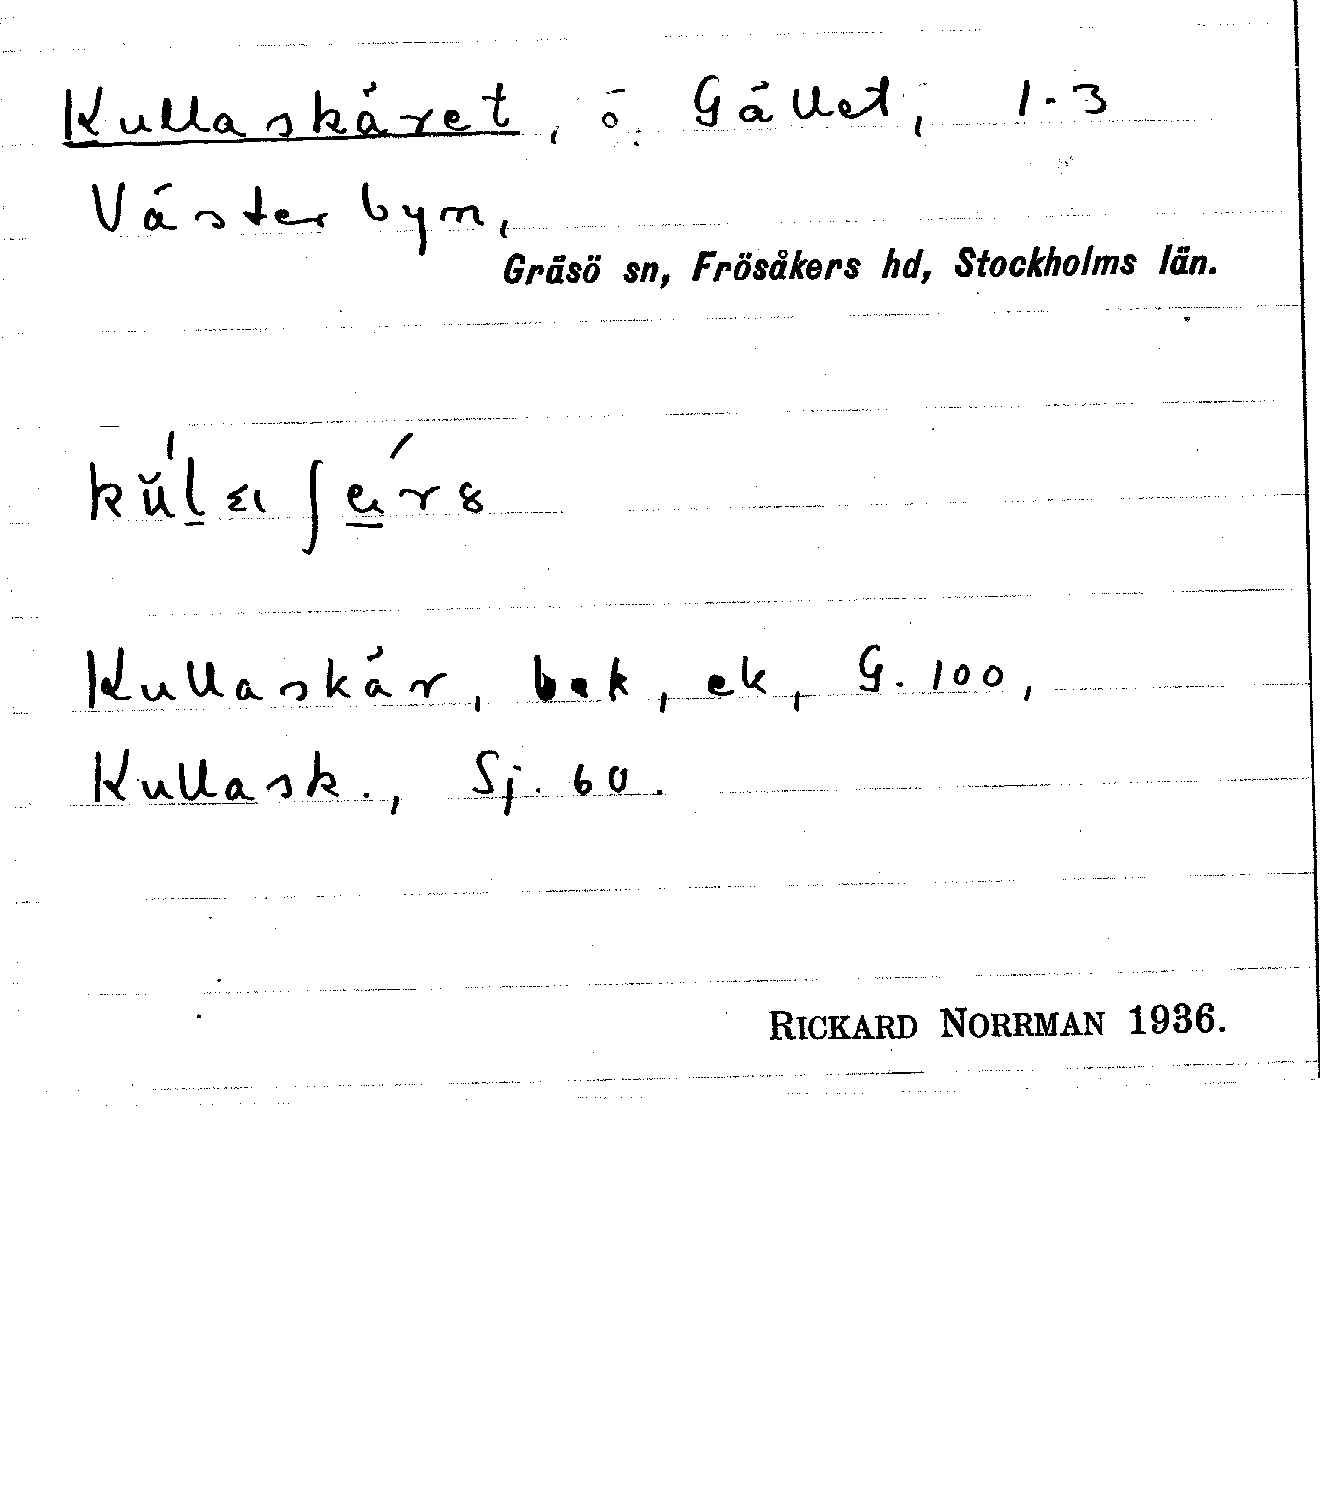 Kullaskäret, ö, Gället, 1-3
Västerbyn,
Gräsö sn, Frösåkers hd, Stockholms län.
Kullaskär, bek, ek, G. 100,
Kullask., Sj. 60.
RICKARD NORRMAN 1936.